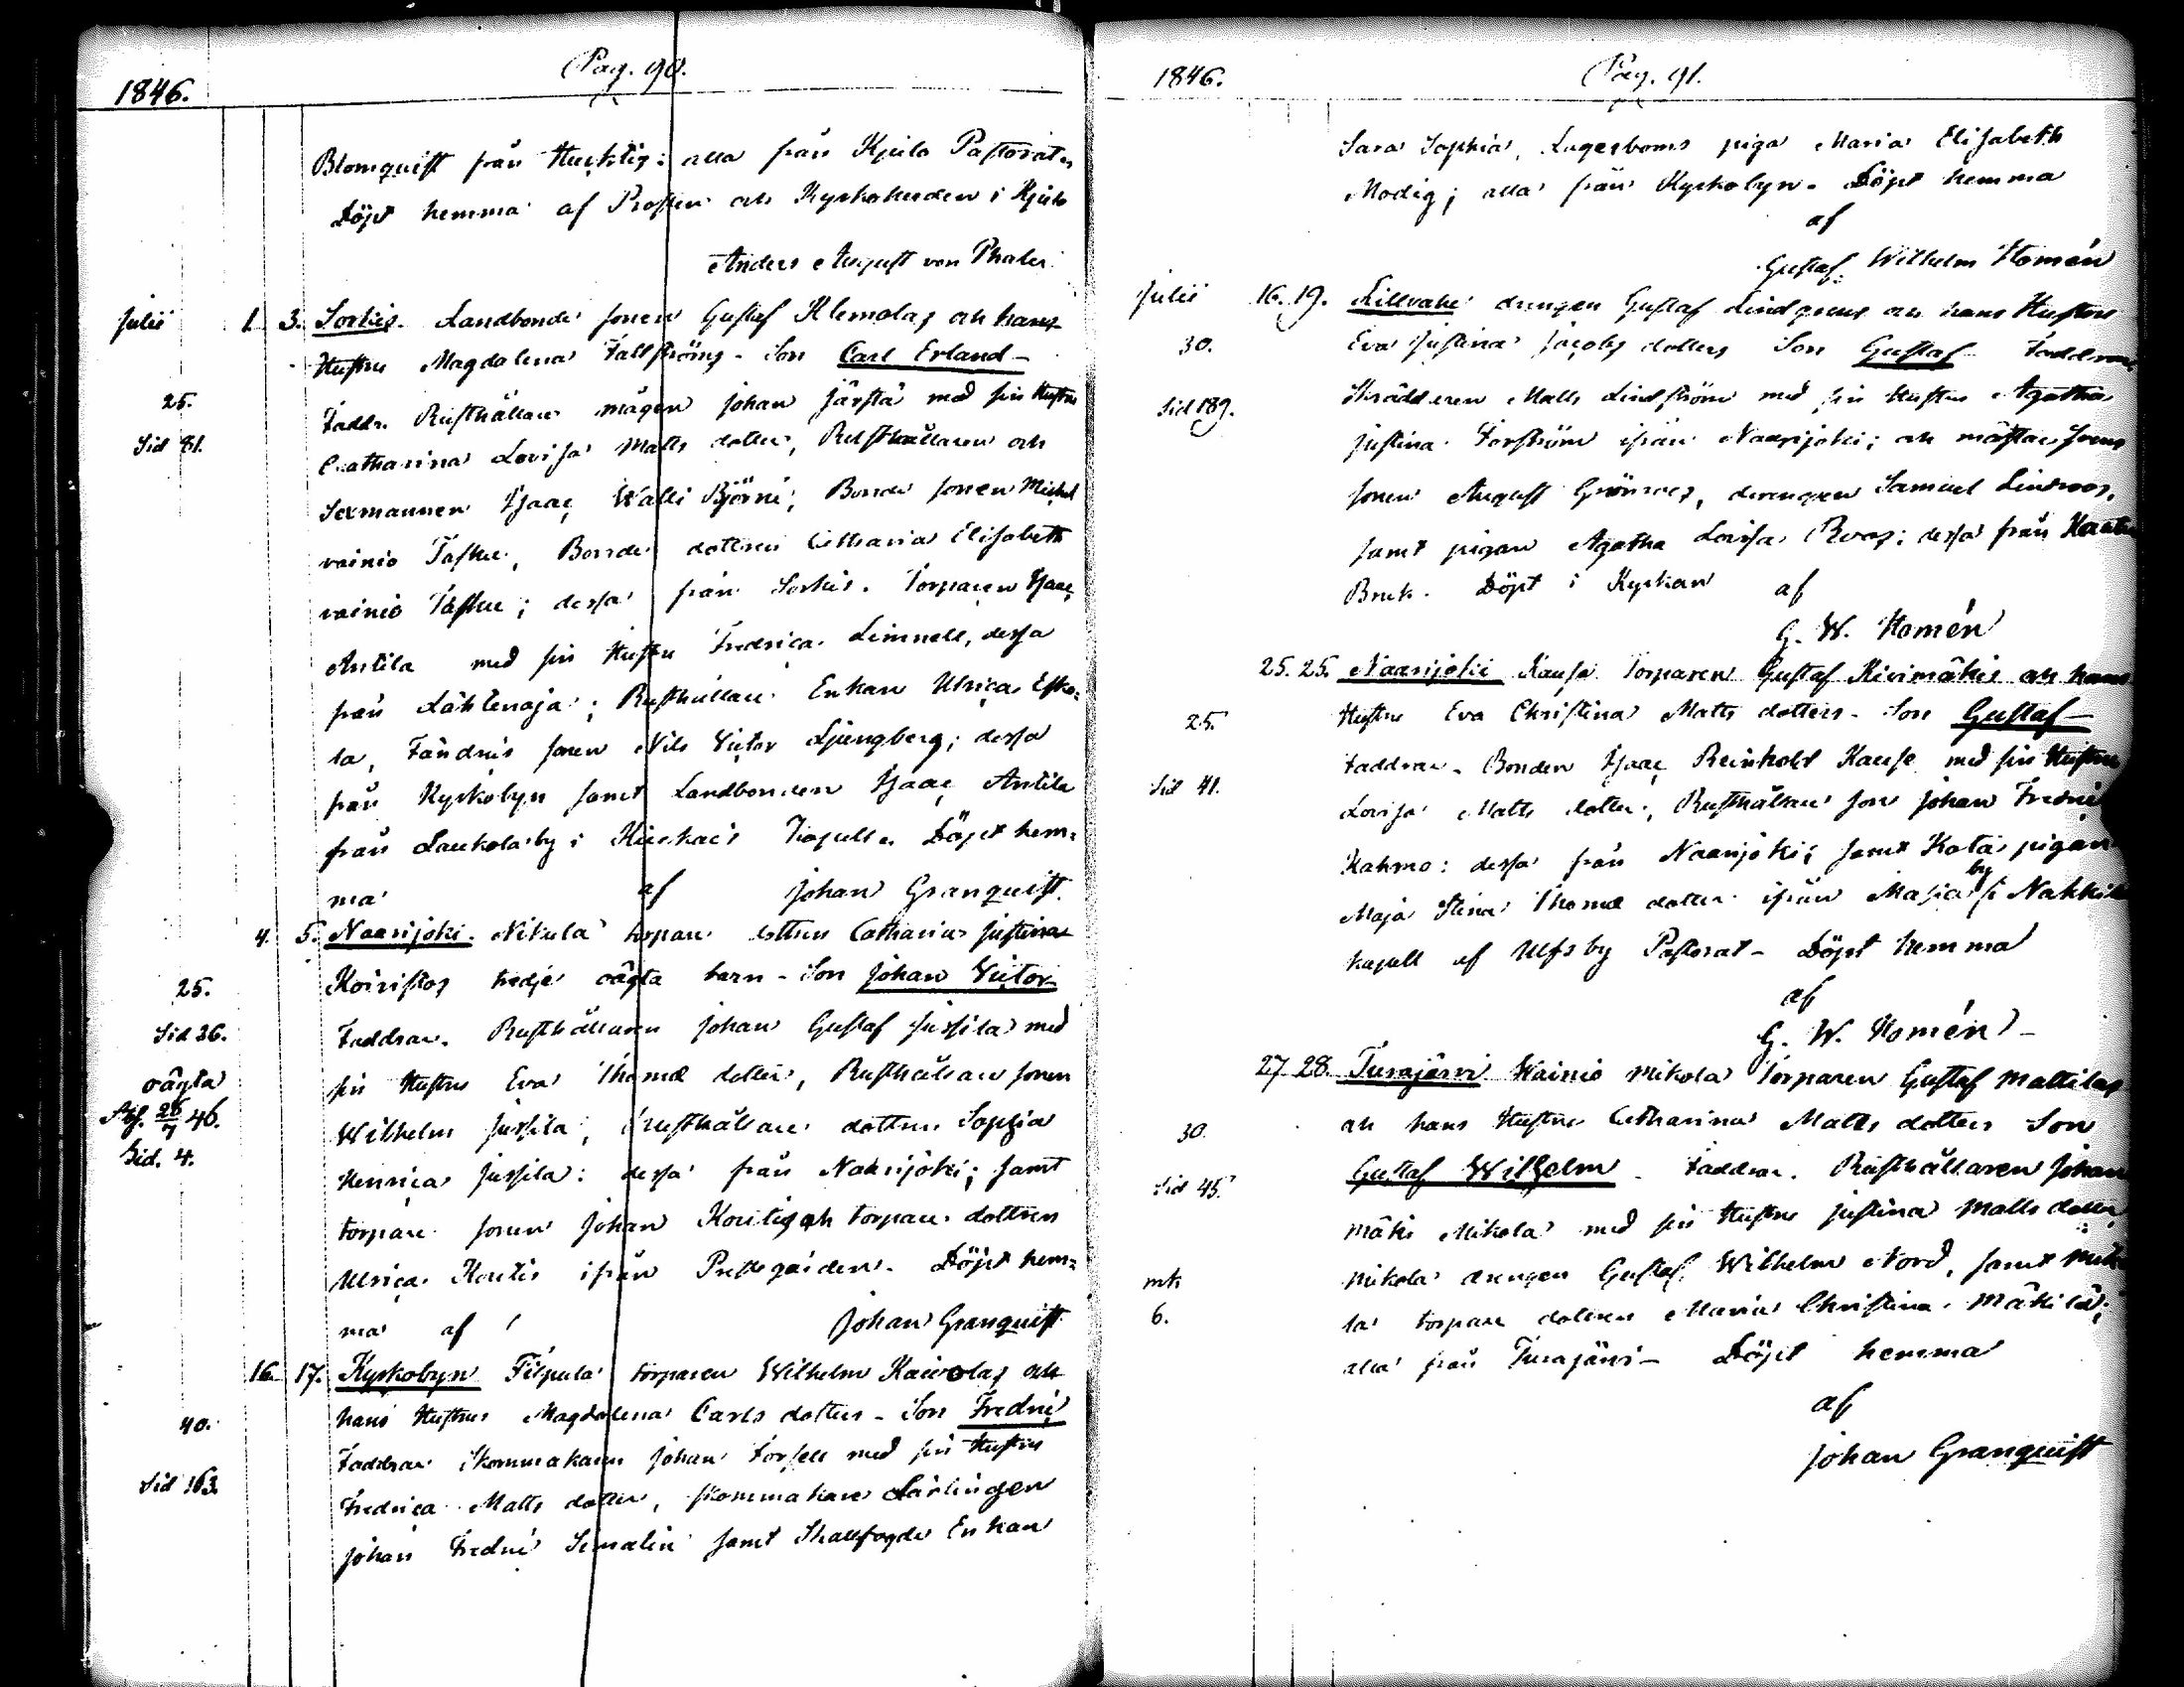 1846.
Pag. 90.
Blomquist från Hurktig; alla från Kjulo Pastorat,
Döpt hemma af Prosten och Kyrkoherden i Kjulo
Anders August von Phaler.
Julii 1. 3. Sorkis. Landbonde sonen Gustaf Klemolas och hans
Hustrus Magdalena Fallströms - Son Carl Erland -
25. Faddr. Rusthållare mågen Johan Järstä med sin Hustru
Sid 81. Catharina Lovisa Matts dotter, Rusthållaren och
Sexmannen Isaac Walli Björni; Bonde sonen Michel
vainio Tasku, Bonde dottren Catharina Elisabeth
vainio Tasku; dessa från Sorkis. Torparen Isaac
Antila med sin Hustru Fredrica Limnell, dessa
från Lähtenoja; Rusthållare Enkan Ulrica Esko-
la, Fändriks sonen Nils Victor Ljungberg; dessa
från Kyrkobyn samt Landbonden Isaac Antila
från Laukola by i Kiukais Capell. Döpt hem-
ma af Johan Granquist.
4. 5. Naarijoki. Nikula torpare dottren Catharina Justina
Koivistos tredje oägta barn - Son Johan Victor
25. Faddrar. Rusthållaren Johan Gustaf Jussila med
Sid 36. sin Hustru Eva Thomæ dotter, Rusthållare sonen
oägta Wilhelm Jussila, Rusthållare dottren Sophia
Afl. 26/7 46. Henrica Jussila: dessa från Naarijoki; samt
Sid. 4. torpare sonen Johan Koutis och torpare dottren
Ulrica Koutis ifrån Prestegården. Döpt hem-
ma af Johan Granquist
16. 17. Kyrkobyn Filpula torparen Wilhelm Kaivolas och
hans Hustrus Magdalena Carls dotters - Son Fredric
40. Faddrar Skommakaren Johan Forsell med sin Hustru
Sid 163. Fredrica Matts dotter, skommakare Lärlingen
Johan Fredric Semelin samt Skallfogde Enkan
1846.
Pag. 91.
Sara Sophia Lagerboms piga Maria Elisabeth
Modig; alla från Kyrkobyn. Döpt hemma
af
Gustaf Wilhelm Homén
Julii 16. 19. Killvake drengen Gustaf Lindgrens och hans Hustrus
30. Eva Justina Jacobs dotters Son Gustaf Faddrar
Sid 189. Skräddaren Matts Lindström med sin Hustru Agatha
Justina Forström ifrån Naarijoki; och mästare svens
sonen August Grönroos, drengen Samuel Lindroos,
samt pigan Agatha Lovisa Roos; dessa från Kauttua
Bruk. Döpt i Kyrkan af
G. W. Homén
25. 25. Naarijoki Kause Torparen Gustaf Kivimäkis och hans
25. Hustrus Eva Christina Matts dotters - Son Gustaf -
Sid 41. Faddrar. Bonden Isaac Reinhold Kause med sin Hustru
Lovisa Matts dotter, Rusthållare son Johan Fredric
Kahmo: dessa från Naarijoki; samt Kota pigan
Maja Stina Thomæ dotter ifrån Masia by i Nakkila
kapell af Ulfsby Pastorat - Döpt hemma
af
G. W. Homén -
27. 28. Turajärvi Wainio Mikola Torparen Gustaf Mattilas
30. och hans Hustrus Catharina Matts dotters Son
Sid 45. Gustaf Wilhelm. Faddrar. Rusthållaren Johan
Mäki Mikola med sin Hustru Justina Matts dotter
mk Mikola drengen Gustaf Wilhelm Nord, samt Miko-
6. la torpare dottren Maria Christina Mäkilä;
alla från Turajärvi - Döpt hemma
af
Johan Granquist